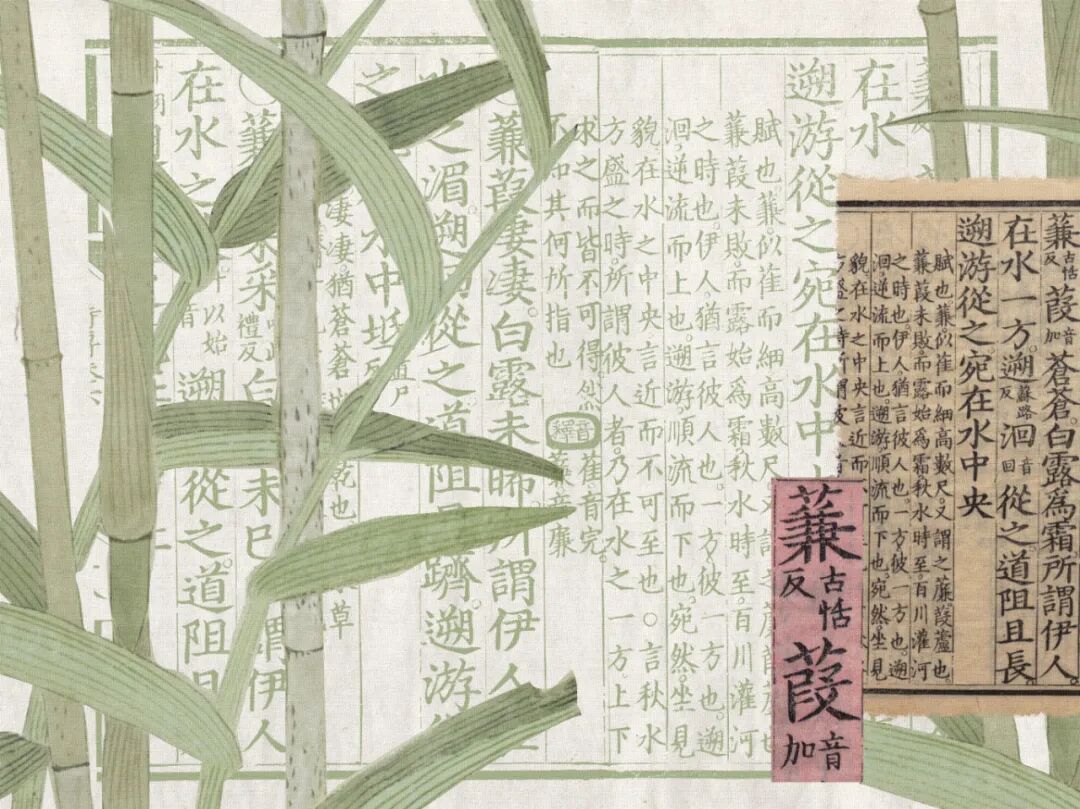 在水
遡游從之宛在水中
賦也蒹似萑而細高數尺又
蒹葭未敗而露始爲霜秋水時至百川灌河
之時也伊人猶言彼人也一方彼一方也遡
洄逆流而上也遡游順流而下也宛然坐見
貌在水之中央言近而不可至也○言秋水
方盛之時所謂彼人者乃在水之一方上下
求之而皆不可得然 萑音完
知其何所指也 音釋 音廉
蒹葭凄凄白露未晞所謂伊人
之湄遡 從之道阻 躋遡游
之 水中坻
凄凄猶蒼蒼 也 草
○蒹 采采 禮反 白 未已 謂伊人
在水之 以始 音 遡 從之道阻且
蒹古恬反葭音加蒼蒼。白露爲霜。所謂伊人。
在水一方。遡蘇路反洄音回從之道阻且長
遡游從之宛在水中央
賦也。蒹似萑而細高數尺又謂之薕葭蘆也
蒹葭未敗。而露始爲霜秋水時至。百川灌河
之時也。伊人猶言彼人也。一方彼一方也。遡
洄逆流而上也。遡游順流而下也。宛然坐見
貌在水之中央言近而
方盛之時所謂彼
蒹古恬反葭音加